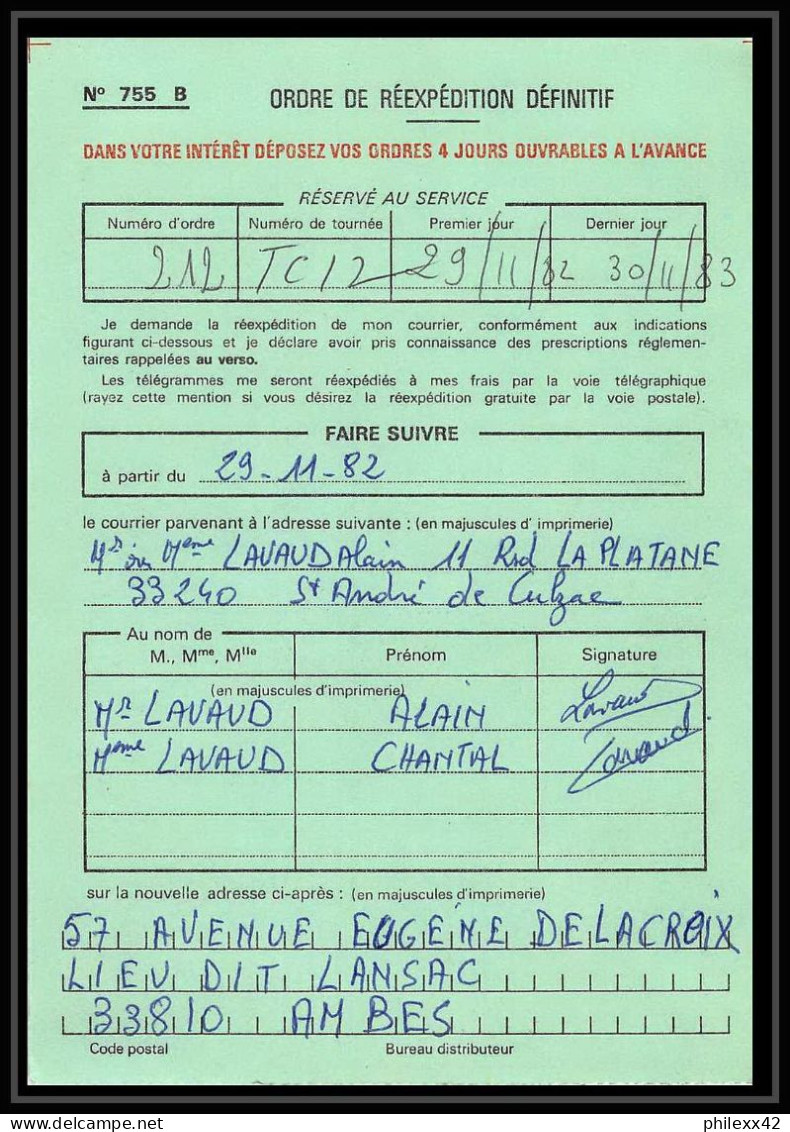 N° 755 B
ORDRE DE RÉEXPÉDITION DÉFINITIF
DANS VOTRE INTÉRÊT DÉPOSEZ VOS ORDRES 4 JOURS OUVRABLES A L'AVANCE
RÉSERVÉ AU SERVICE
Numéro d'ordre Numéro de tournée Premier jour Dernier jour
212 TC12 29/11/82 30/11/83
Je demande la réexpédition de mon courrier, conformément aux indications
figurant ci-dessous et je déclare avoir pris connaissance des prescriptions réglemen-
taires rappelées au verso.
Les télégrammes me seront réexpédiés à mes frais par la voie télégraphique
(rayez cette mention si vous désirez la réexpédition gratuite par la voie postale).
FAIRE SUIVRE
à partir du 29-11-82
le courrier parvenant à l'adresse suivante : (en majuscules d' imprimerie)
Mr ou Mme LAVAUD Alain 11 Rsd LA PLATANE
33240 St André de Cubzac
Au nom de
M., Mme, Mlle Prénom Signature
(en majuscules d'imprimerie)
Mr LAVAUD ALAIN Lavaud
Mme LAVAUD CHANTAL Lavaud
sur la nouvelle adresse ci-après : (en majuscules d'imprimerie)
57 AVENUE EUGÉNE DELACROIX
LIEU DIT LANSAC
33810 AMBES
Code postal Bureau distributeur
philexx42